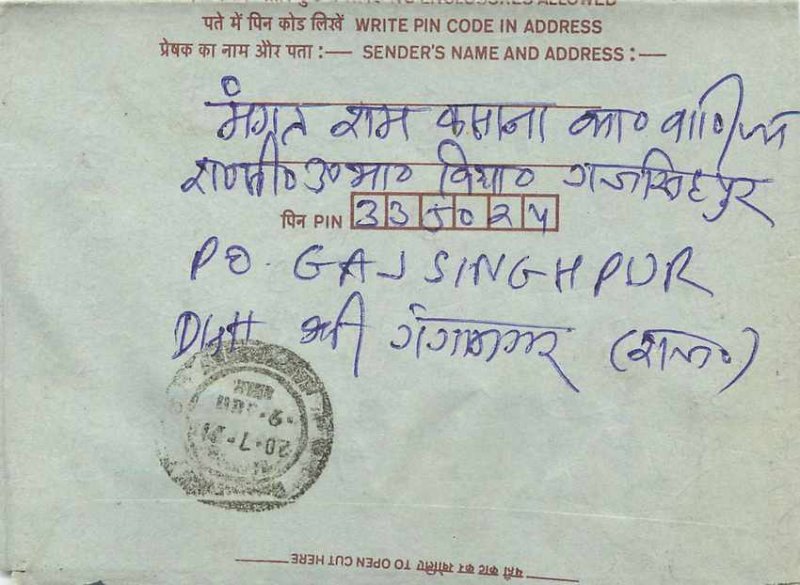 ENCLOSURES ALLOWED
पते में पिन कोड लिखें WRITE PIN CODE IN ADDRESS
प्रेषक का नाम और पता :— SENDER'S NAME AND ADDRESS :—
मंगत राम
रा० उ० मा० विद्या० गजसिंहपुर
पिन PIN 335024
PO. GAJSINGHPUR
Distt श्री गंगानगर (राज०)
20.7.
यहाँ काट कर खोलिए TO OPEN CUT HERE